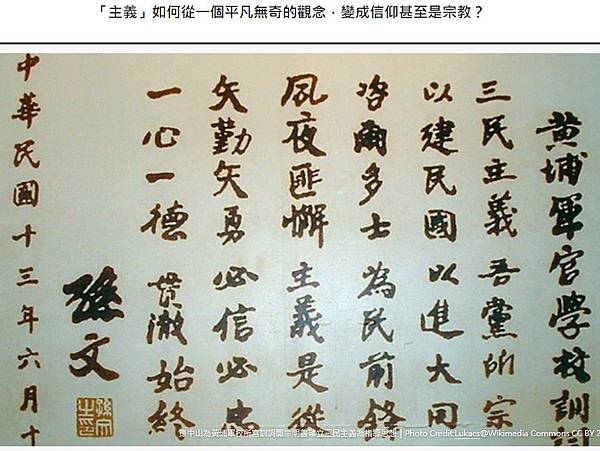 「主義」如何從一個平凡無奇的觀念，變成信仰甚至是宗教？
黃埔軍官學校訓
三民主義吾黨所宗
以建民國以進大同
咨爾多士為民前鋒
夙夜匪懈主義是從
矢勤矢勇必信必忠
一心一德貫澈始終
孫文
中華民國十三年六月十
孫中山為黃埔軍校所寫訓詞開宗明義確立三民主義為指導思想 | Photo Credit Lukacs@Wikimedia Commons CC BY 2